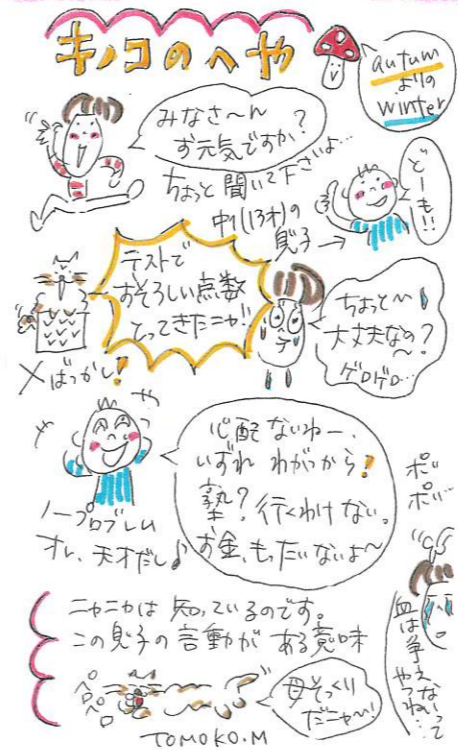 キノコのへや
autum
よりの
winter
みなさ〜ん
お元気ですか?
ちょっと聞いて下さいよ…
中1(13才)の
息子→
どーも!!
テストで
おそろしい点数
とってきたニャ!
×ばっかし!
ちょっと〜
大丈夫なの?
ゲロゲロ…
心配ないわー、
いずれ わかっから!
塾?行くわけない。
お金、もったいないよ〜
ノープロブレム
オレ、天才だし♪
ポッ
ポッ…
血は争
えないって
やつね…
ニャニャは 知っているのです。
この息子の言動が ある意味
母そっくり
だニャ〜!
ペロ
ペロ
TOMOKO.M